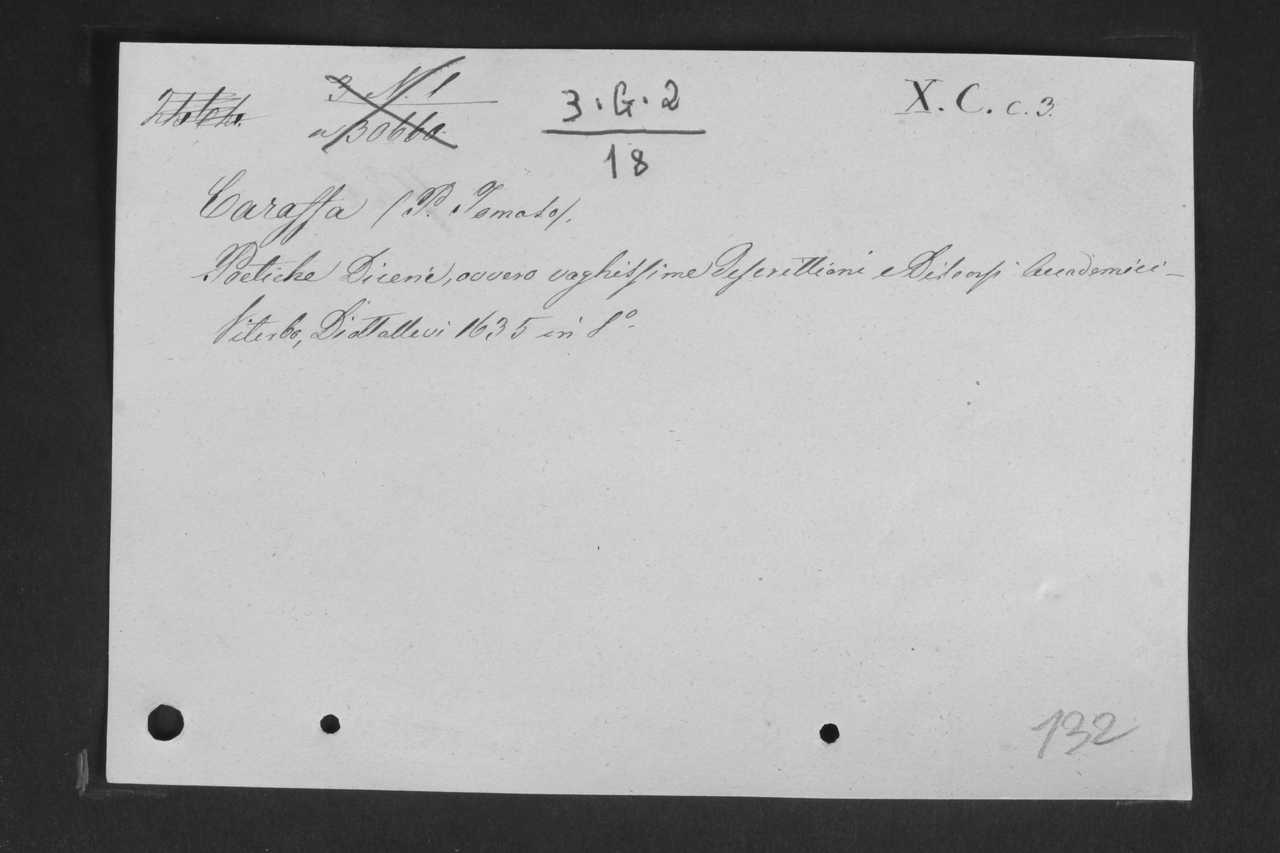 3 N. 1
3 . G . 2
X. C. c. 3.
a 30660
18
Caraffa (P. Tomaso).
Poetiche Dicerie, ovvero vaghissime Descrittioni e Discorsi Accademici –
Viterbo, Diotallevi 1635 in 8º.
132